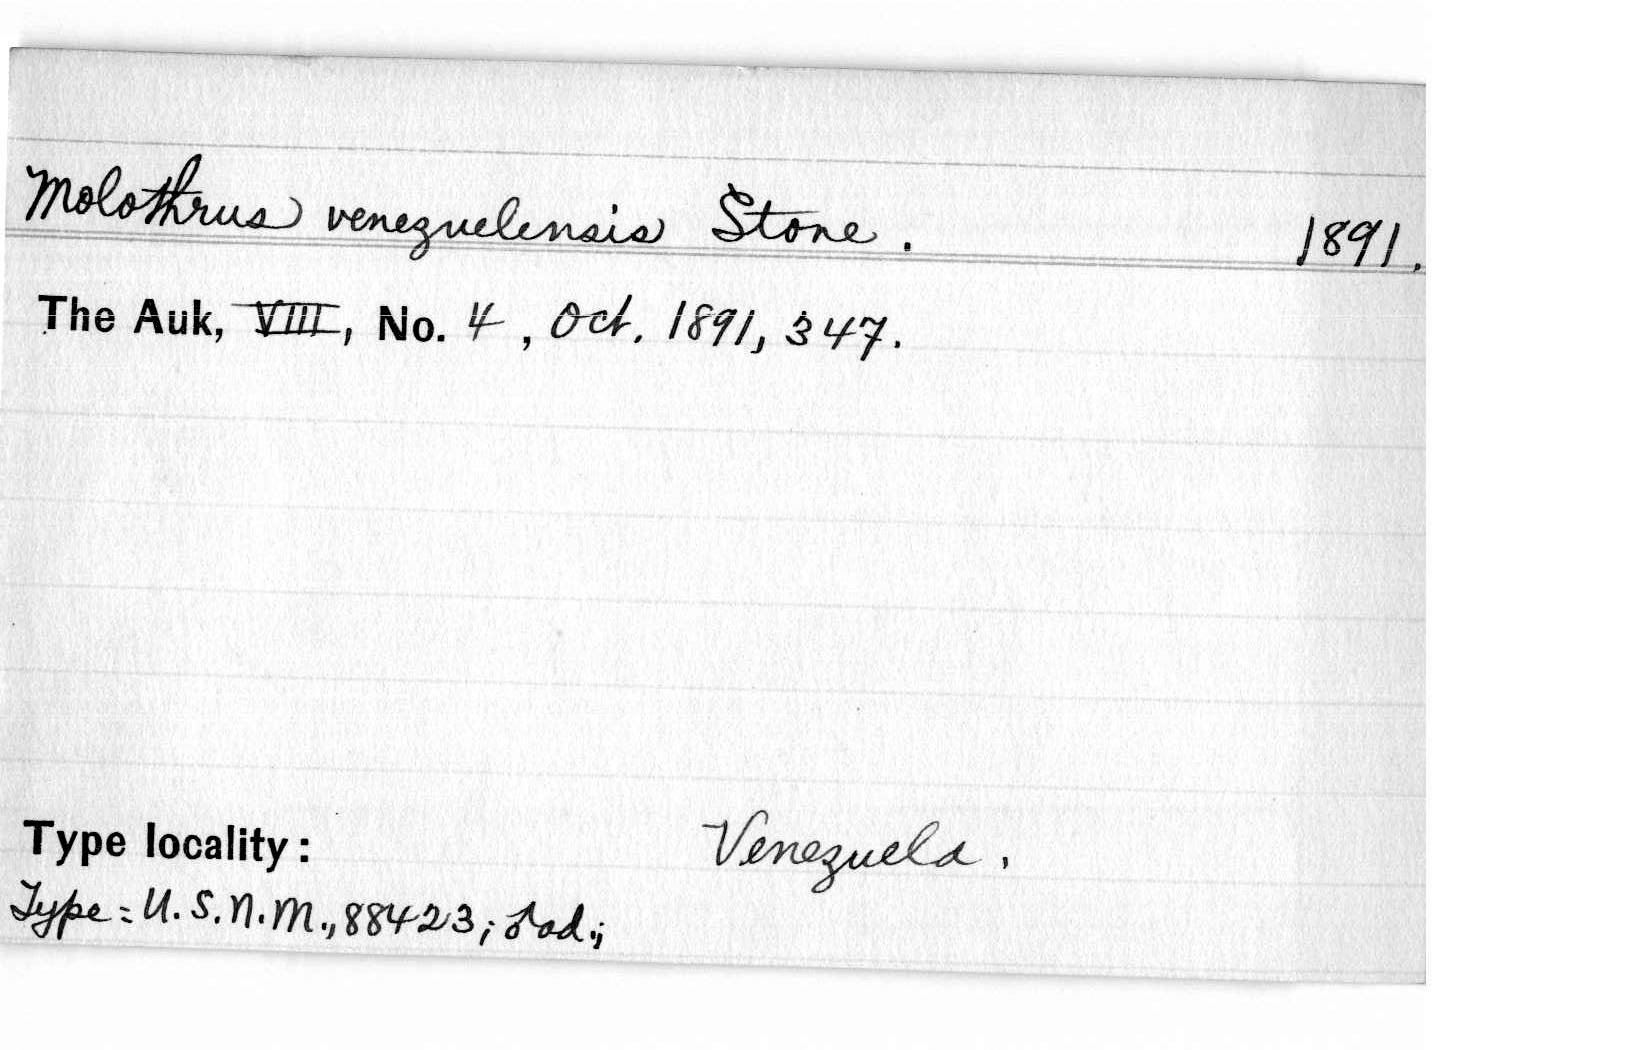 Molothrus venezuelensis Stone. 1891.
The Auk, VIII, No. 4, Oct. 1891, 347.
Type locality: Venezuela.
Type = U.S.N.M., 88423; ♂ad.;